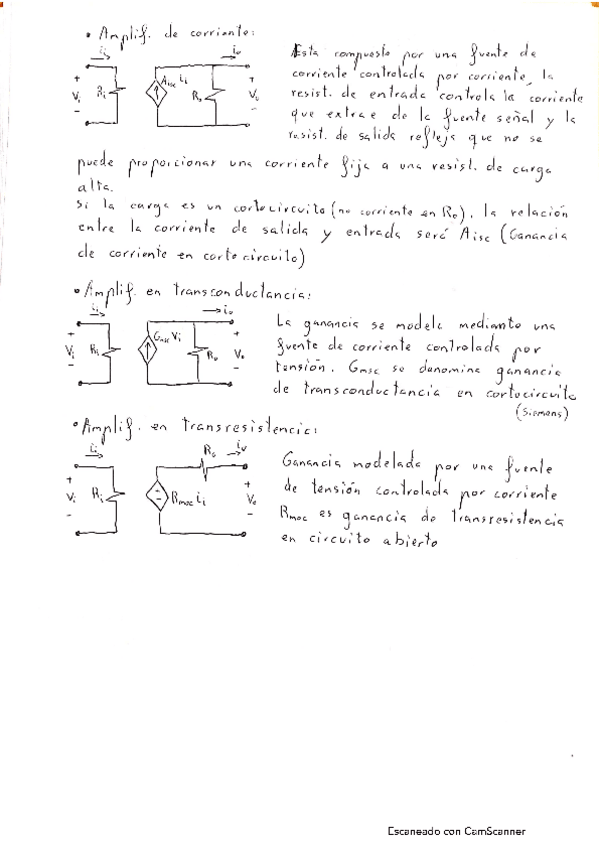 • Amplif. de corriente:
ii
io
+
Vi
-
Ri
Aisc ii
Ro
+
Vo
-
Esta compuesto por una fuente de
corriente controlada por corriente, la
resist. de entrada controla la corriente
que extrae de la fuente señal y la
resist. de salida refleja que no se
puede proporcionar una corriente fija a una resist. de carga
alta.
Si la carga es un cortocircuito (no corriente en Ro), la relación
entre la corriente de salida y entrada será Aisc (Ganancia
de corriente en cortocircuito)
• Amplif. en transconductancia:
ii
io
+
Vi
-
Ri
Gmsc Vi
Ro
+
Vo
-
La ganancia se modela mediante una
fuente de corriente controlada por
tensión. Gmsc se denomina ganancia
de transconductancia en cortocircuito
(Siemens)
• Amplif. en transresistencia:
ii
Ro
io
+
Vi
-
Ri
+
-
Rmoc ii
+
Vo
-
Ganancia modelada por una fuente
de tensión controlada por corriente
Rmoc es ganancia de transresistencia
en circuito abierto
Escaneado con CamScanner